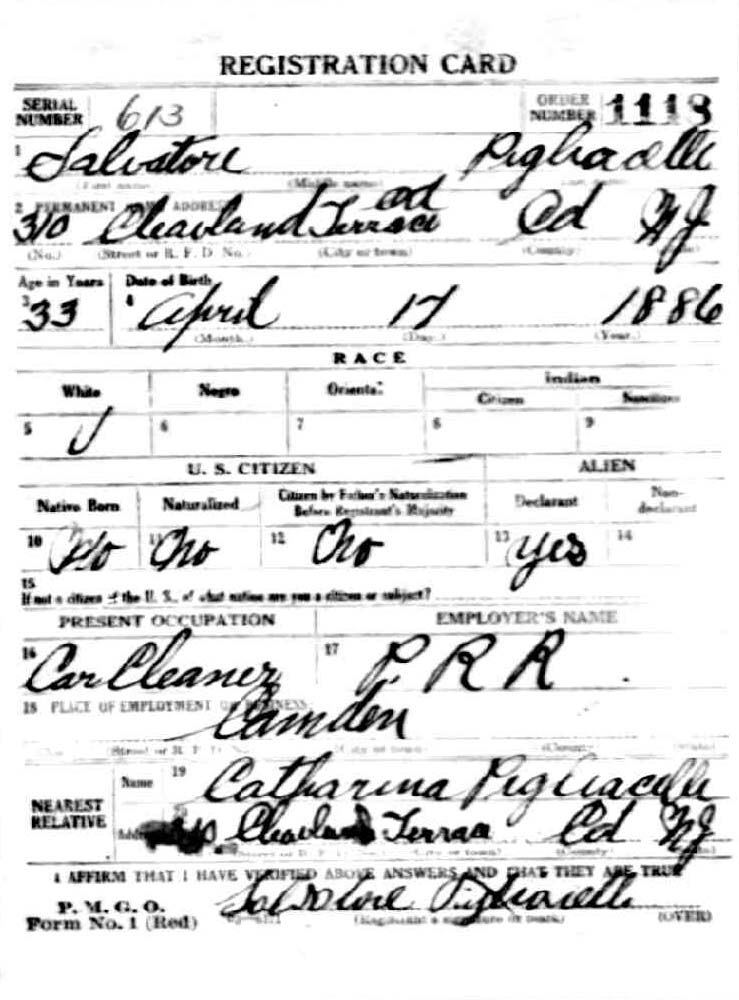 REGISTRATION CARD
SERIAL NUMBER 613 ORDER NUMBER 1118
1 Salvatore Pigliacelli
(First name) (Middle name)
2 PERMANENT HOME ADDRESS
310 Cleavland Terrace Cd Cd NJ
(No.) (Street or R. F. D. No.) (City or town) (County)
Age in Years Date of Birth
3 33 4 April 17 1886
(Month.) (Day.) (Year.)
RACE
White Negro Oriental Indian
Citizen Noncitizen
5 ✓ 6 7 8 9
U. S. CITIZEN ALIEN
Native Born Naturalized Citizen by Father's Naturalization Before Registrant's Majority Declarant Non-declarant
10 No 11 No 12 No 13 Yes 14
15
If not a citizen of the U. S., of what nation are you a citizen or subject?
PRESENT OCCUPATION EMPLOYER'S NAME
16 Car Cleaner 17 P. R R.
18 PLACE OF EMPLOYMENT OR BUSINESS:
Camden
(Street or R. F. D. No.) (City or town) (County) (State)
NEAREST RELATIVE Name 19 Catharina Pigliacelli
Address 310 Cleavland Terrace Cd NJ
I AFFIRM THAT I HAVE VERIFIED ABOVE ANSWERS AND THAT THEY ARE TRUE
P. M. G. O.
Form No. 1 (Red) Salvatore Pigliacelli
(Registrant's signature or mark) (OVER)